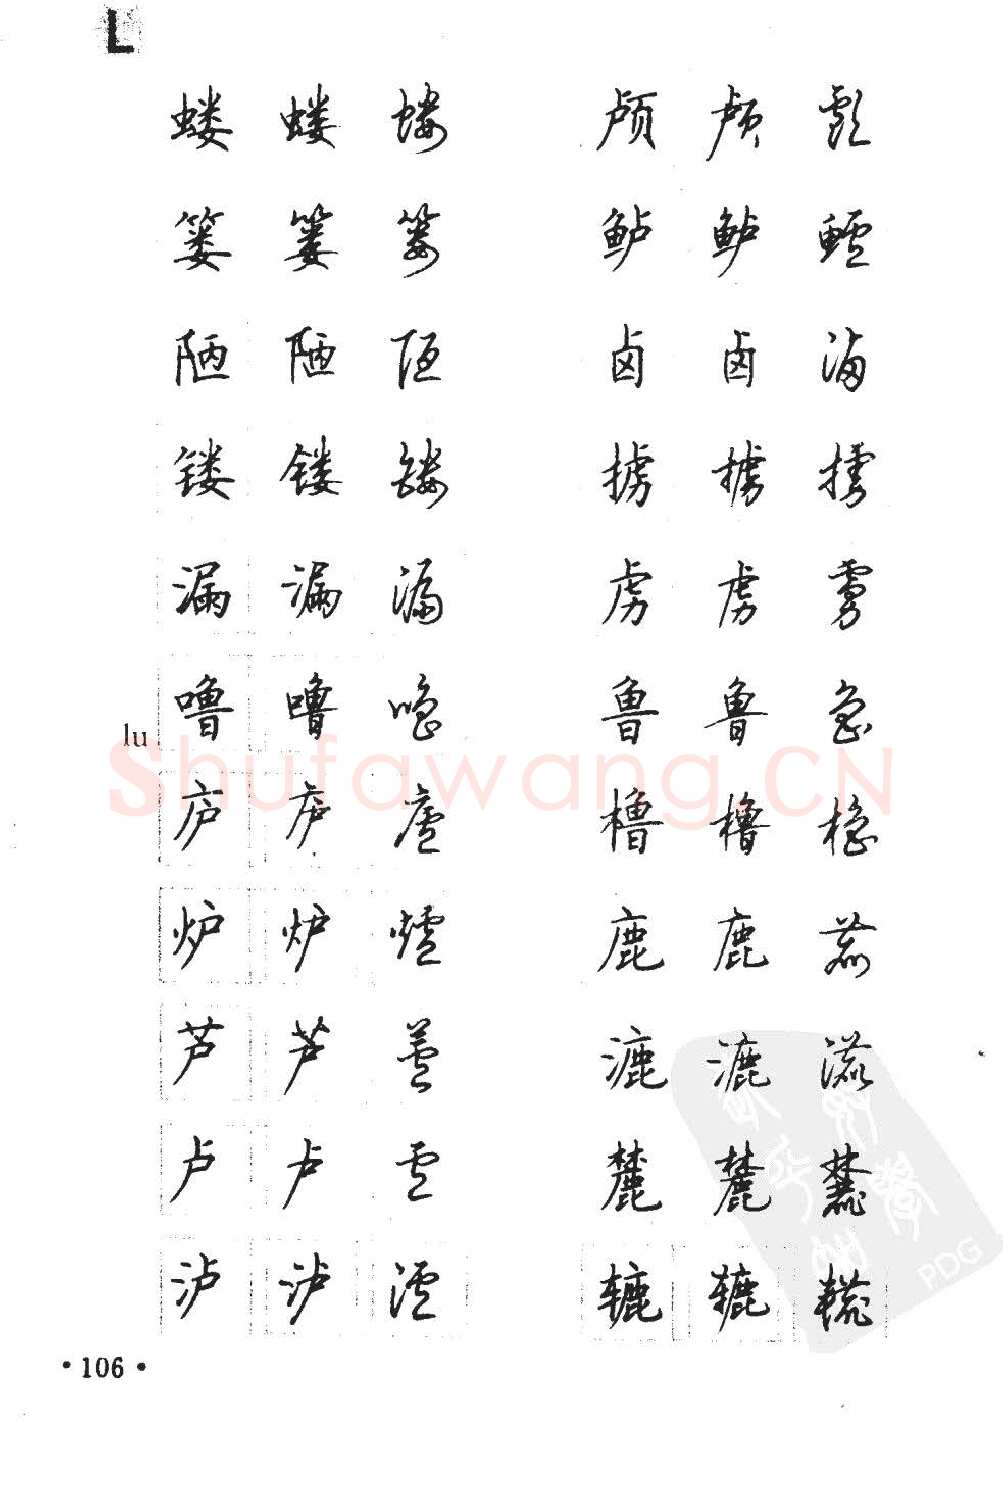 L
蝼 蝼 蝼 颅 颅 顱
篓 篓 簍 鲈 鲈 鱸
陋 陋 陋 卤 卤 滷
镂 镂 鏤 掳 掳 擄
漏 漏 漏 虏 虏 虜
噜 噜 噜 鲁 鲁 鲁
lu
庐 庐 廬 橹 橹 橹
炉 炉 爐 鹿 鹿 鹿
芦 芦 蘆 漉 漉 漉
卢 卢 盧 麓 麓 麓
泸 泸 瀘 辘 辘 轆
·106·
Shufawang.CN
PDG